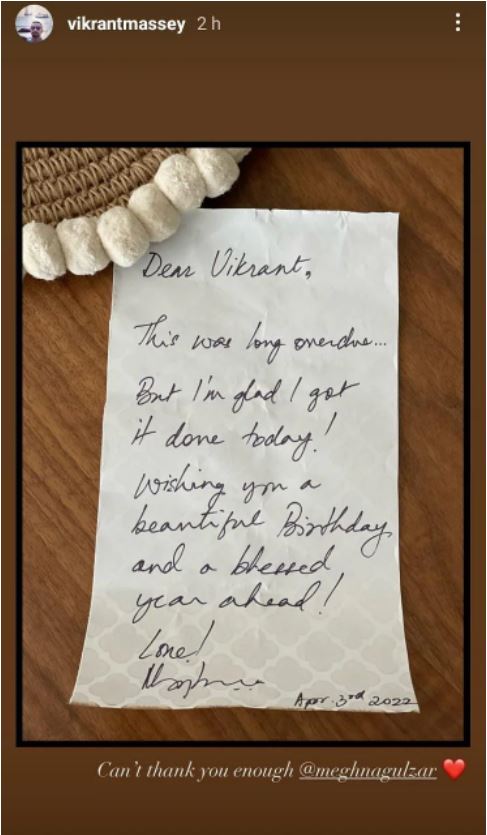 vikrantmassey 2 h
Dear Vikrant,
This was long overdue...
But I'm glad I got
it done today!
Wishing you a
beautiful Birthday
and a blessed
year ahead!
Love!
Meghna
Apr. 3rd 2022
Can't thank you enough @meghnagulzar ❤️